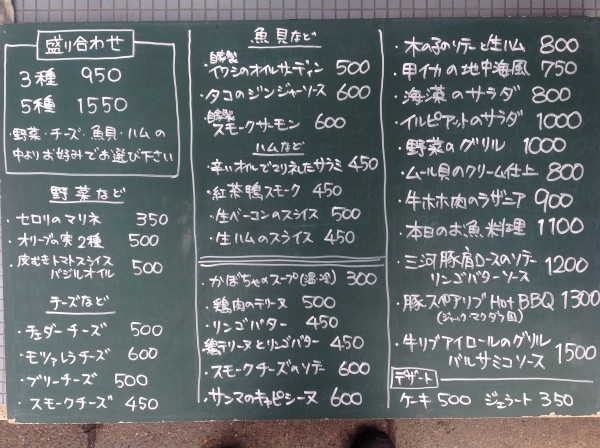 盛り合わせ
3種 950
5種 1550
野菜・チーズ・魚貝・ハムの
中よりお好みでお選び下さい
野菜など
・セロリのマリネ 350
・オリーブの実2種 500
皮むきトマトスライス
バジルオイル 500
チーズなど
・チェダーチーズ 500
・モツァレラチーズ 600
・ブリーチーズ 500
・スモークチーズ 450
魚貝など
自家製
・イワシのオイルサーディン 500
・タコのジンジャーソース 600
自家製
・スモークサーモン 600
ハムなど
・辛いオイルでマリネしたサラミ 450
・紅茶鴨スモーク 450
・生ベーコンのスライス 500
・生ハムのスライス 450
・かぼちゃのスープ(温・冷) 300
・鶏肉のテリーヌ 500
・リンゴバター 450
鶏テリーヌとリンゴバター 450
・スモークチーズのソテー 600
・サンマのキャピシーヌ 600
・木の子のソテーと生ハム 800
・甲イカの地中海風 750
・海藻のサラダ 800
・イルピアットのサラダ 1000
・野菜のグリル 1000
・ムール貝のクリーム仕上 800
・牛ホホ肉のラザニア 900
・本日のお魚料理 1100
・三河豚肩ロースのソテー
リンゴバターソース 1200
・豚スペアリブ Hot BBQ 1300
(ジャック・マクダウ風)
・牛リブアイロールのグリル
バルサミコソース 1500
デザート
ケーキ 500 ジェラート 350